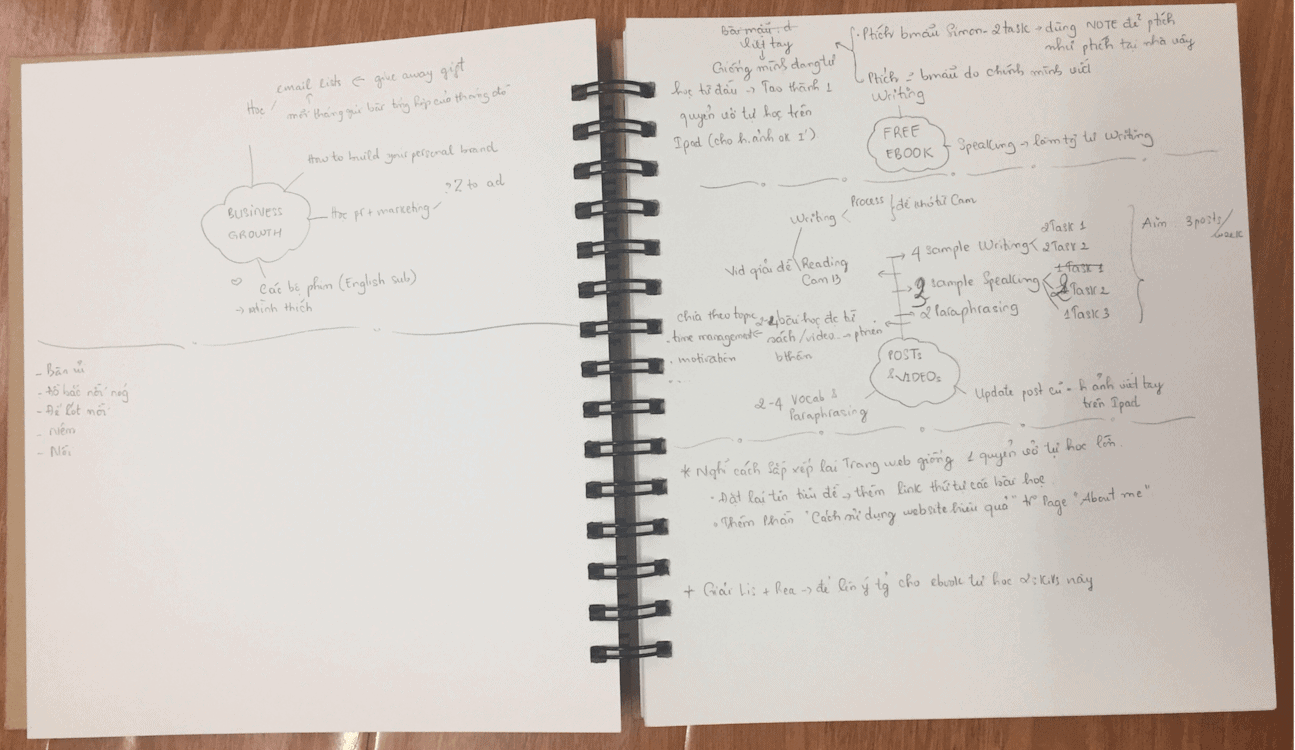 email lists ← give away gift
Học
mỗi tháng gửi bài tổng hợp của tháng đó
How to build your personal brand
BUSINESS
GROWTH
Học pr + marketing
? Z to ad
♡ Các bộ phim (English sub)
→ mình thích
- Bàn ủi
- Đế lót nồi
- Nệm
- Nồi
Bài mẫu
viết tay
Giống mình đang tự
học từ đầu → Tạo thành 1
quyển vở tự học trên
Ipad (cho h.ảnh
• Ptích bmẫu Simon - 2 task → dùng NOTE để ptích
như ptích tại nhà vậy
Ptích = bmẫu do chính mình viết
Writing
FREE
EBOOK
Speaking → làm tg tự Writing
Writing
Process
đề khó từ Cam
Vid giải đề
Reading
Cam 13
4 sample Writing
2 Task 1
2 Task 2
3 sample Speaking
1 Task 1
2 Task 2
1 Task 3
2 Paraphrasing
Aim: 3 posts/
week
chia theo topic
• time management
• motivation
...
bài học đc từ
sách/video → ptriển
bthân
POSTs
& VIDEOs
2-4 Vocab &
Paraphrasing
Update post cũ - h.ảnh viết tay
trên Ipad
* Nghĩ cách sắp xếp lại Trang web giống 1 quyển vở tự học lớn.
• Đặt lại tên tiêu đề → thêm link thứ tự các bài học
• Thêm Phần "Cách sử dụng website hiệu quả" từ Page "About me"
+ Giải Lis + Rea → để lên ý tg cho ebook tự học 2 skills này